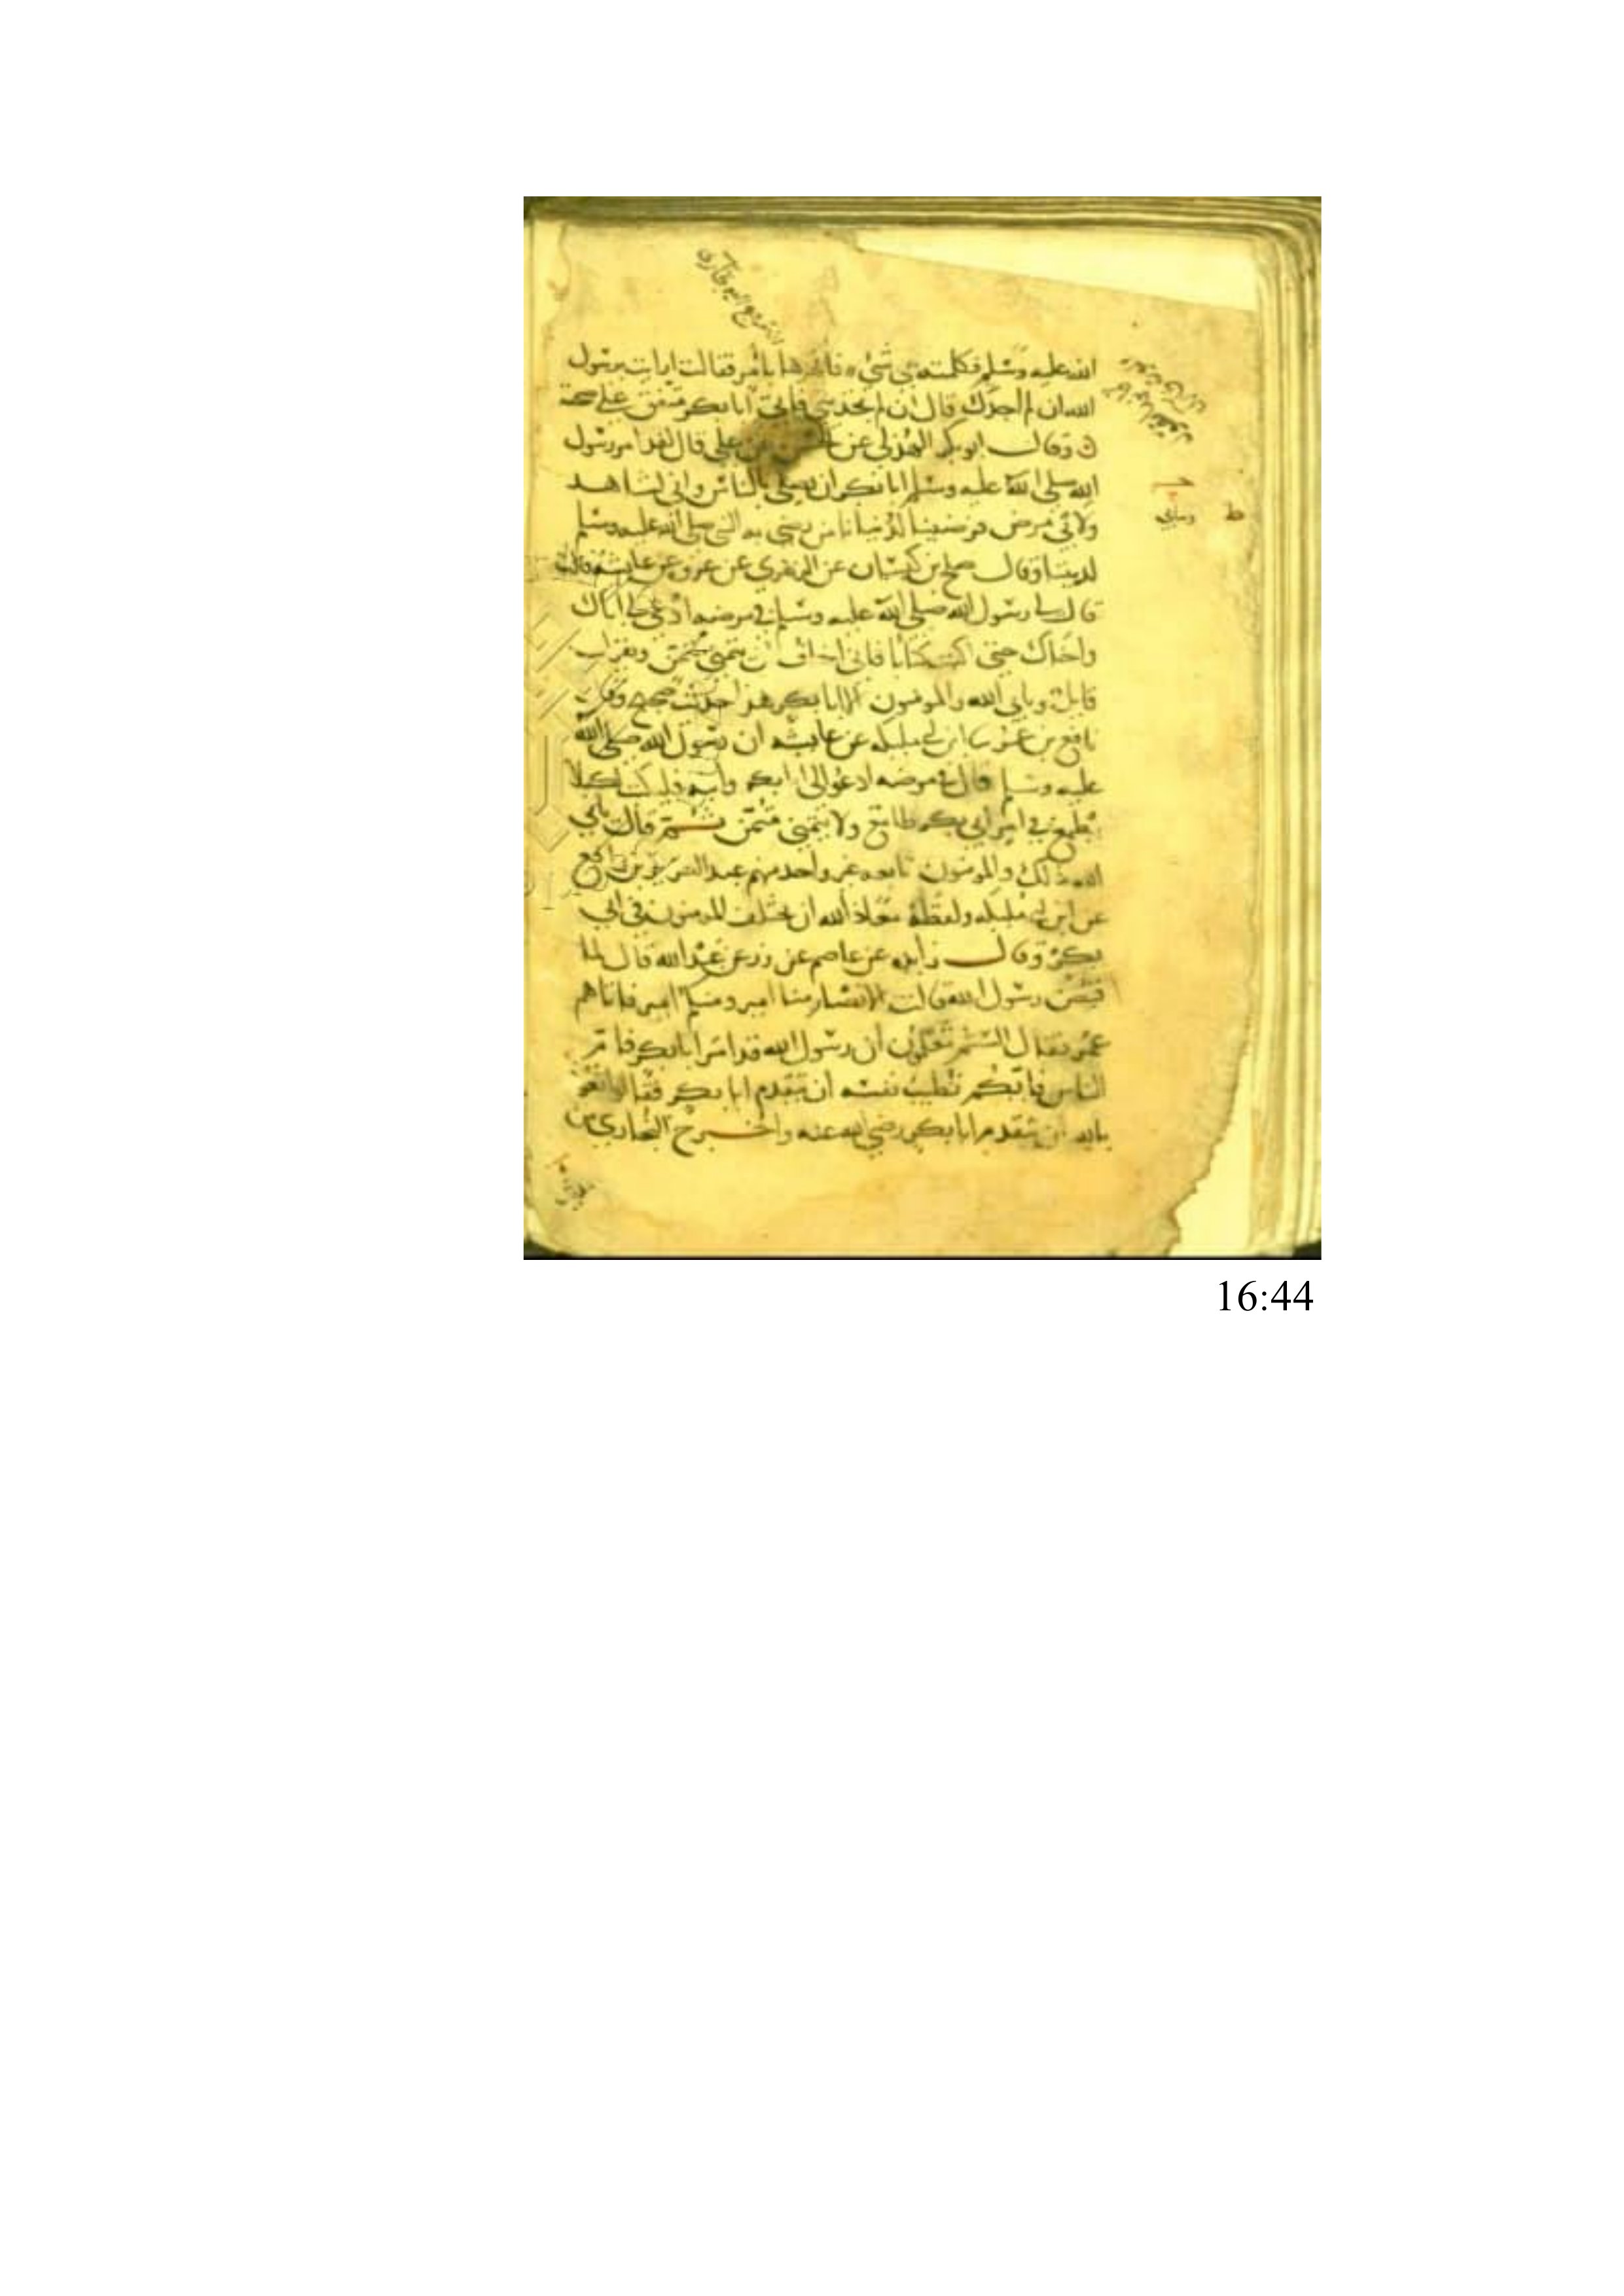 الله عليه وسلم فكلمته في شيء فامرها بامر فقالت ارايت يرسول
الله ان لم اجدك قال ان لم تجديني فاتي ابا بكر متفق على صحته
وقال ابو بكر الهذلي عن الحسن عن علي قال لقد امر رسول
الله صلى الله عليه وسلم ابا بكر ان يصلي بالناس واني لشاهد
وما بي مرض فرضينا لدنيانا من رضي به النبي صلى الله عليه وسلم
لديننا وقال صلح بن كيسان عن الزهري عن عروة عن عايشه قالت
قال لي رسول الله صلى الله عليه وسلم في مرضه ادعي لي اباك
واخاك حتى اكتب كتابا فاني اخاف ان يتمنى متمن ويقول
قايل ويابى الله والمومنون الا ابا بكر هذا حديث صحيح وقال
نافع بن عمر ابن ابي مليكه عن عايشه ان رسول الله صلى الله
عليه وسلم قال في مرضه ادعوا لي ابا بكر وابنه فليكتب لكيلا
يطمع في امر ابي بكر طامع ولا يتمنى متمن ثم قال يابى
الله ذلك والمومنون تابعه غير واحد منهم عبد العزيز بن رفيع
عن ابن ابي مليكه ولفظه معاذ الله ان يختلف المومنون في ابي
بكر وقال زايده عن عاصم عن زر عن عبد الله قال لما
قبض رسول الله قالت الانصار منا امير ومنكم امير فاتاهم
عمر فقال الستم تعلمون ان رسول الله قد امر ابا بكر فام
الناس فايكم تطيب نفسه ان يتقدم ابا بكر فقالوا نعوذ
بالله ان نتقدم ابا بكر رضي الله عنه واخرج البخاري من
16:44